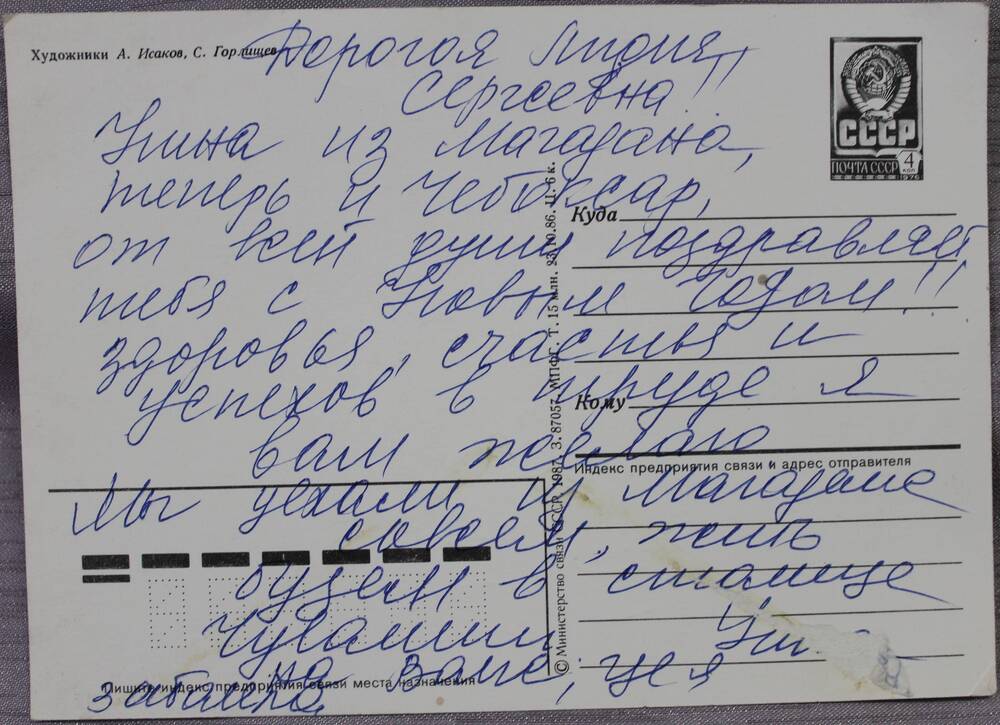 Художники А. Исаков, С. Горлищев
Дорогая Лидия
Сергеевна!!
Унина из Магадана,
теперь и Чебоксар,
от всей души поздравляет
тебя с Новым Годом!!
здоровья, счастья и
успехов в труде я
вам желаю
Мы уехали из Магадана
совсем, жить
будем в столице
Чувашии
Уни
на Волге,
забыла
СССР
ПОЧТА СССР
4
коп
1976
Куда
Кому
Индекс предприятия связи и адрес отправителя
© Министерство связи СССР, 1987. З. 87057. МПФГ. Т. 15 млн. 23.10.86. Ц. 6 к.
Пишите индекс предприятия связи места назначения